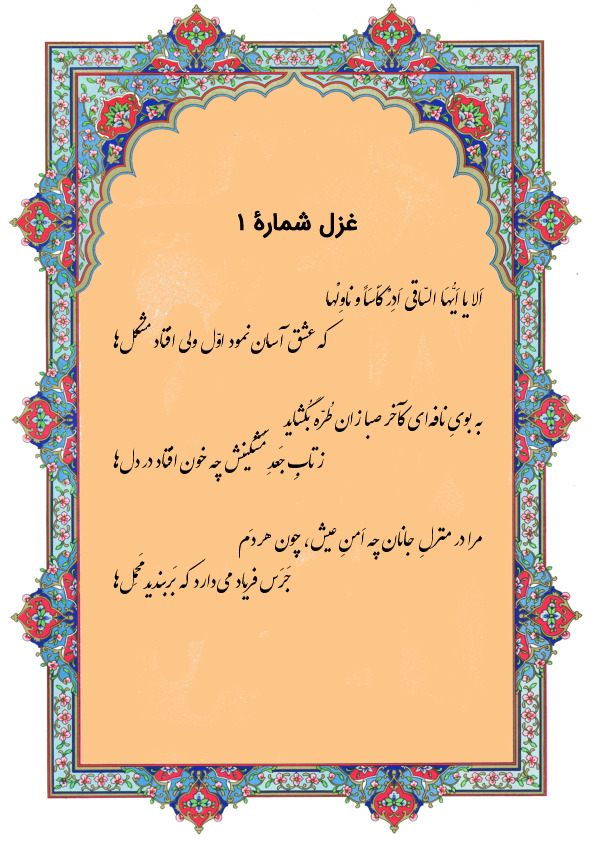 غزل شمارهٔ ۱
اَلا یا اَیُّهَا السّاقی اَدِرْ کَأسَاً و ناوِلْها
که عشق آسان نمود اوّل ولی افتاد مشکل‌ها
به بویِ نافه‌ای کآخر صبا زان طُرّه بُگشاید
ز تابِ جَعدِ مشکینش چه خون افتاد در دل‌ها
مرا در منزلِ جانان چه اَمنِ عیش، چون هر دَم
جَرَس فریاد می‌دارد که بَربندید مَحمِل‌ها